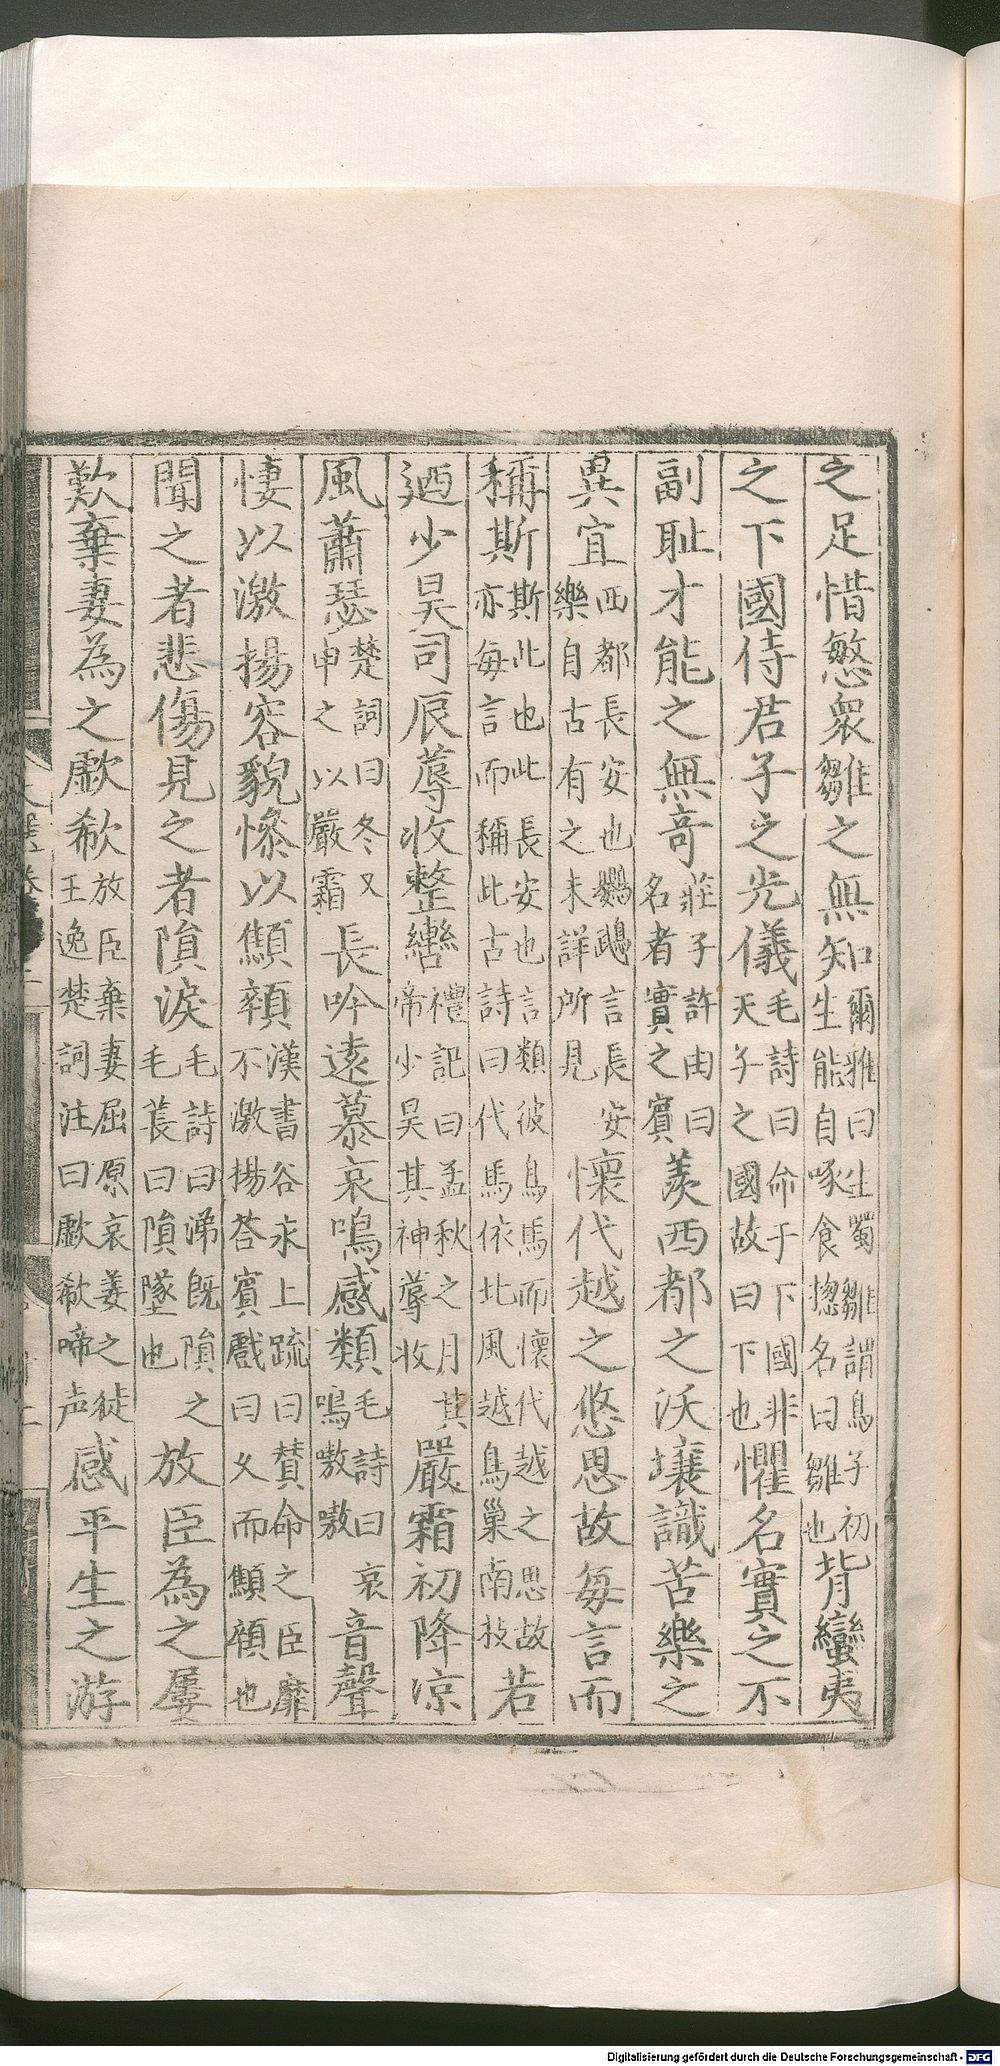 之足惜愍衆雛之無知爾雅曰生蜀雛謂鳥子初生能自啄食揔名曰雛也背蠻夷
之下國侍君子之光儀毛詩曰命于下國非天子之國故曰下也懼名實之不
副耻才能之無竒莊子許由曰名者實之賓羨西都之沃壤識苦樂之
異宜西都長安也鸚鵡言長安樂自古有之未詳所見懷代越之悠思故每言而
稱斯斯此也此長安也言類彼鳥馬而懷代越之思故亦每言而稱此古詩曰代馬依北風越鳥巢南枝若
迺少昊司辰蓐收整轡禮記曰孟秋之月其帝少昊其神蓐收嚴霜初降涼
風蕭瑟楚詞曰冬又申之以嚴霜長吟遠慕哀鳴感類毛詩曰哀鳴嗷嗷音聲
悽以激揚容貌慘以顦顇漢書谷永上疏曰賛命之臣靡不激揚荅賓戲曰夕而顦顇也
聞之者悲傷見之者隕淚毛詩曰涕既隕之毛萇曰隕墜也放臣為之屢
歎棄妻為之歔欷放臣棄妻屈原哀姜之徒王逸楚詞注曰歔欷啼声感平生之游
Digitalisierung gefördert durch die Deutsche Forschungsgemeinschaft - DFG